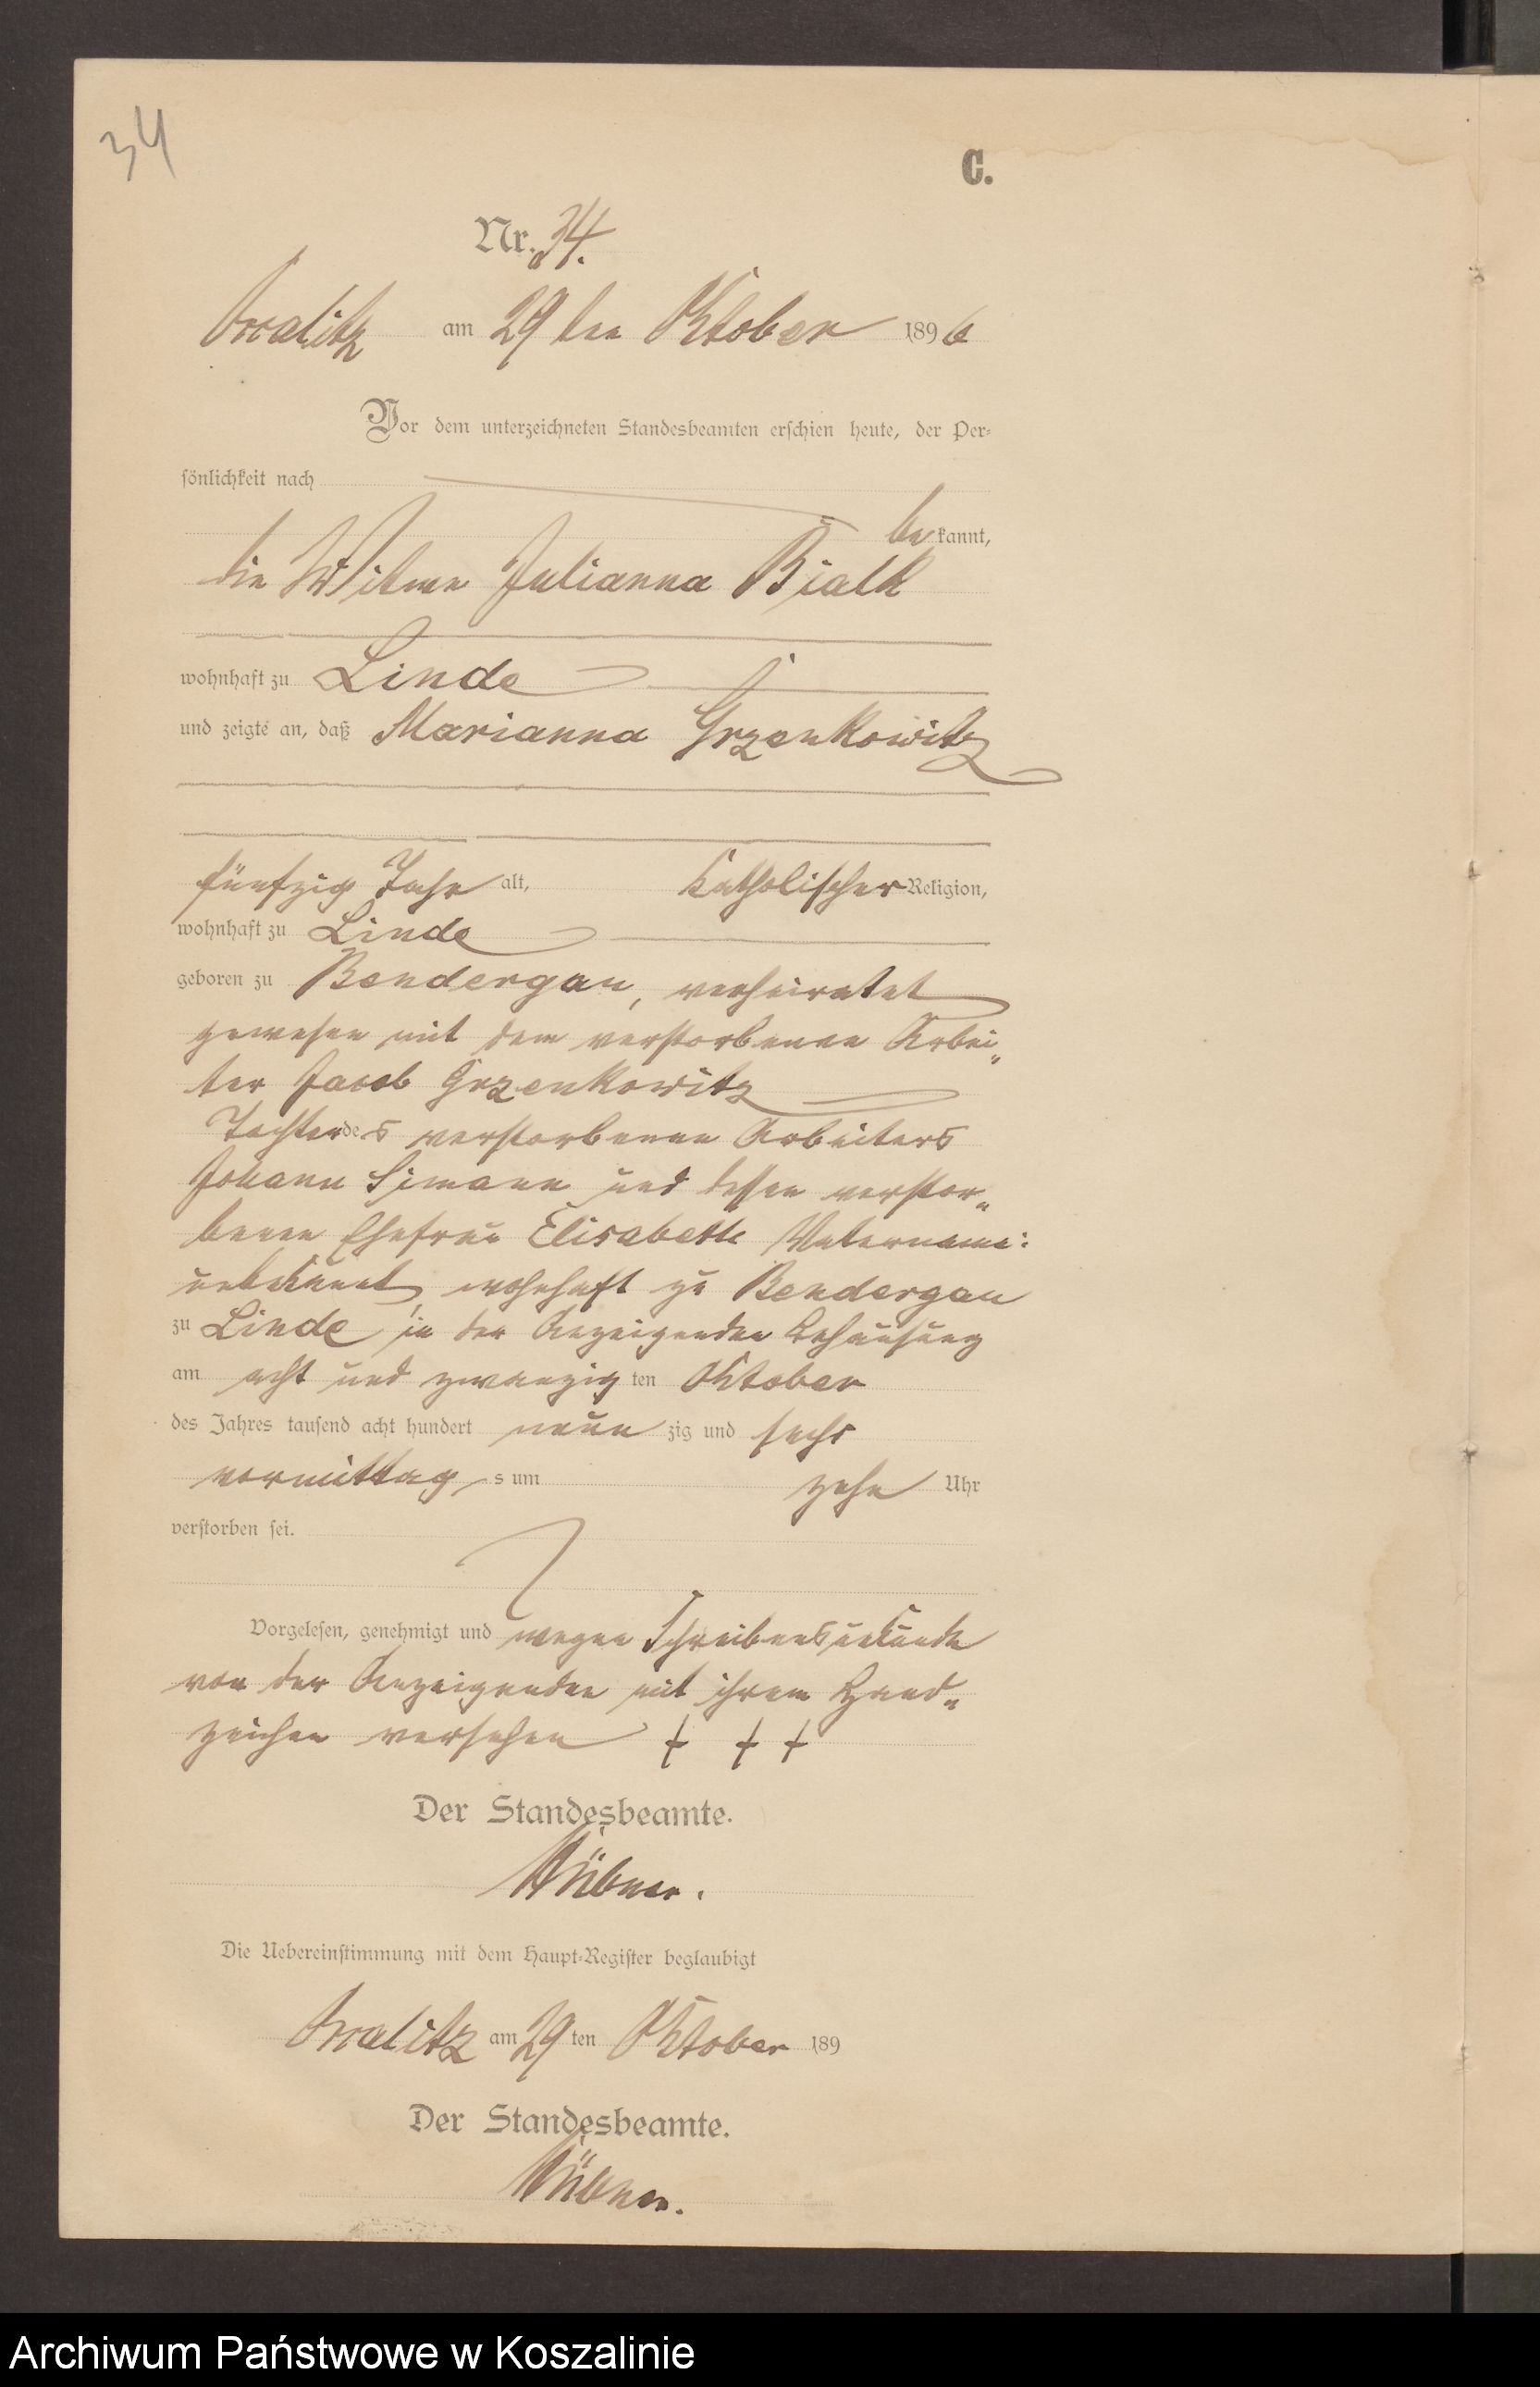 34
C.
Nr. 34.
am 29 ten Oktober 1896
Vor dem unterzeichneten Standesbeamten erschien heute, der Per-
sönlichkeit nach
bekannt,
die Witwe Julianna Bialk
wohnhaft zu Linde
und zeigte an, daß Marianna Grzenkowitz
fünfzig Jahr alt, Katholischer Religion,
wohnhaft zu Linde
geboren zu Bendergau, verheiratet
gewesen mit dem verstorbenen Arbei„
ter Jacob Grzenkowitz
Tochter des verstorbenen Arbeiters
Johann Simann und dessen verstor„
benen Ehefrau Elisabeth Vatername:
unbekannt wohnhaft zu Bendergau
zu Linde in der Anzeigenden Behausung
am acht und zwanzig ten Oktober
des Jahres tausend acht hundert neun zig und sechs
vormittag s um zehn Uhr
verstorben sei.
Vorgelesen, genehmigt und wegen Schreibensunkunde
von der Anzeigenden mit ihrem Hand„
zeichen versehen + + +
Der Standesbeamte.
Hübner.
Die Uebereinstimmung mit dem Haupt-Register beglaubigt
am 29 ten Oktober 189
Der Standesbeamte.
Hübner.
Archiwum Państwowe w Koszalinie